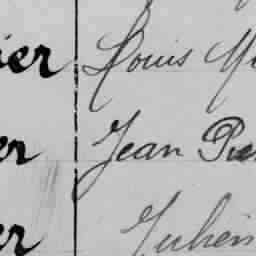 ier Louis M
er Jean Pie
er Julien